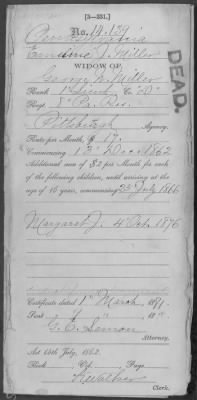 [3—231.]
No. 14.139
Pennsylvania
Emeline J. Miller
WIDOW OF
George W. Miller
Rank 1" Lieut, Co. "D"
Regt. 8" Pa. Res.
Pittsburgh Agency.
Rate per Month, $ 17
Commencing 13" Dec. 1862
Additional sum of $2 per Month for each
of the following children, until arriving at the
age of 16 years, commencing 25 July 1866
Margaret J. 4" Oct. 1876
Certificate dated 1" March, 1871.
Sent
G. E. Lemon
Attorney.
Act 14th July, 1862.
Book Vol. Page
Clerk.
DEAD.